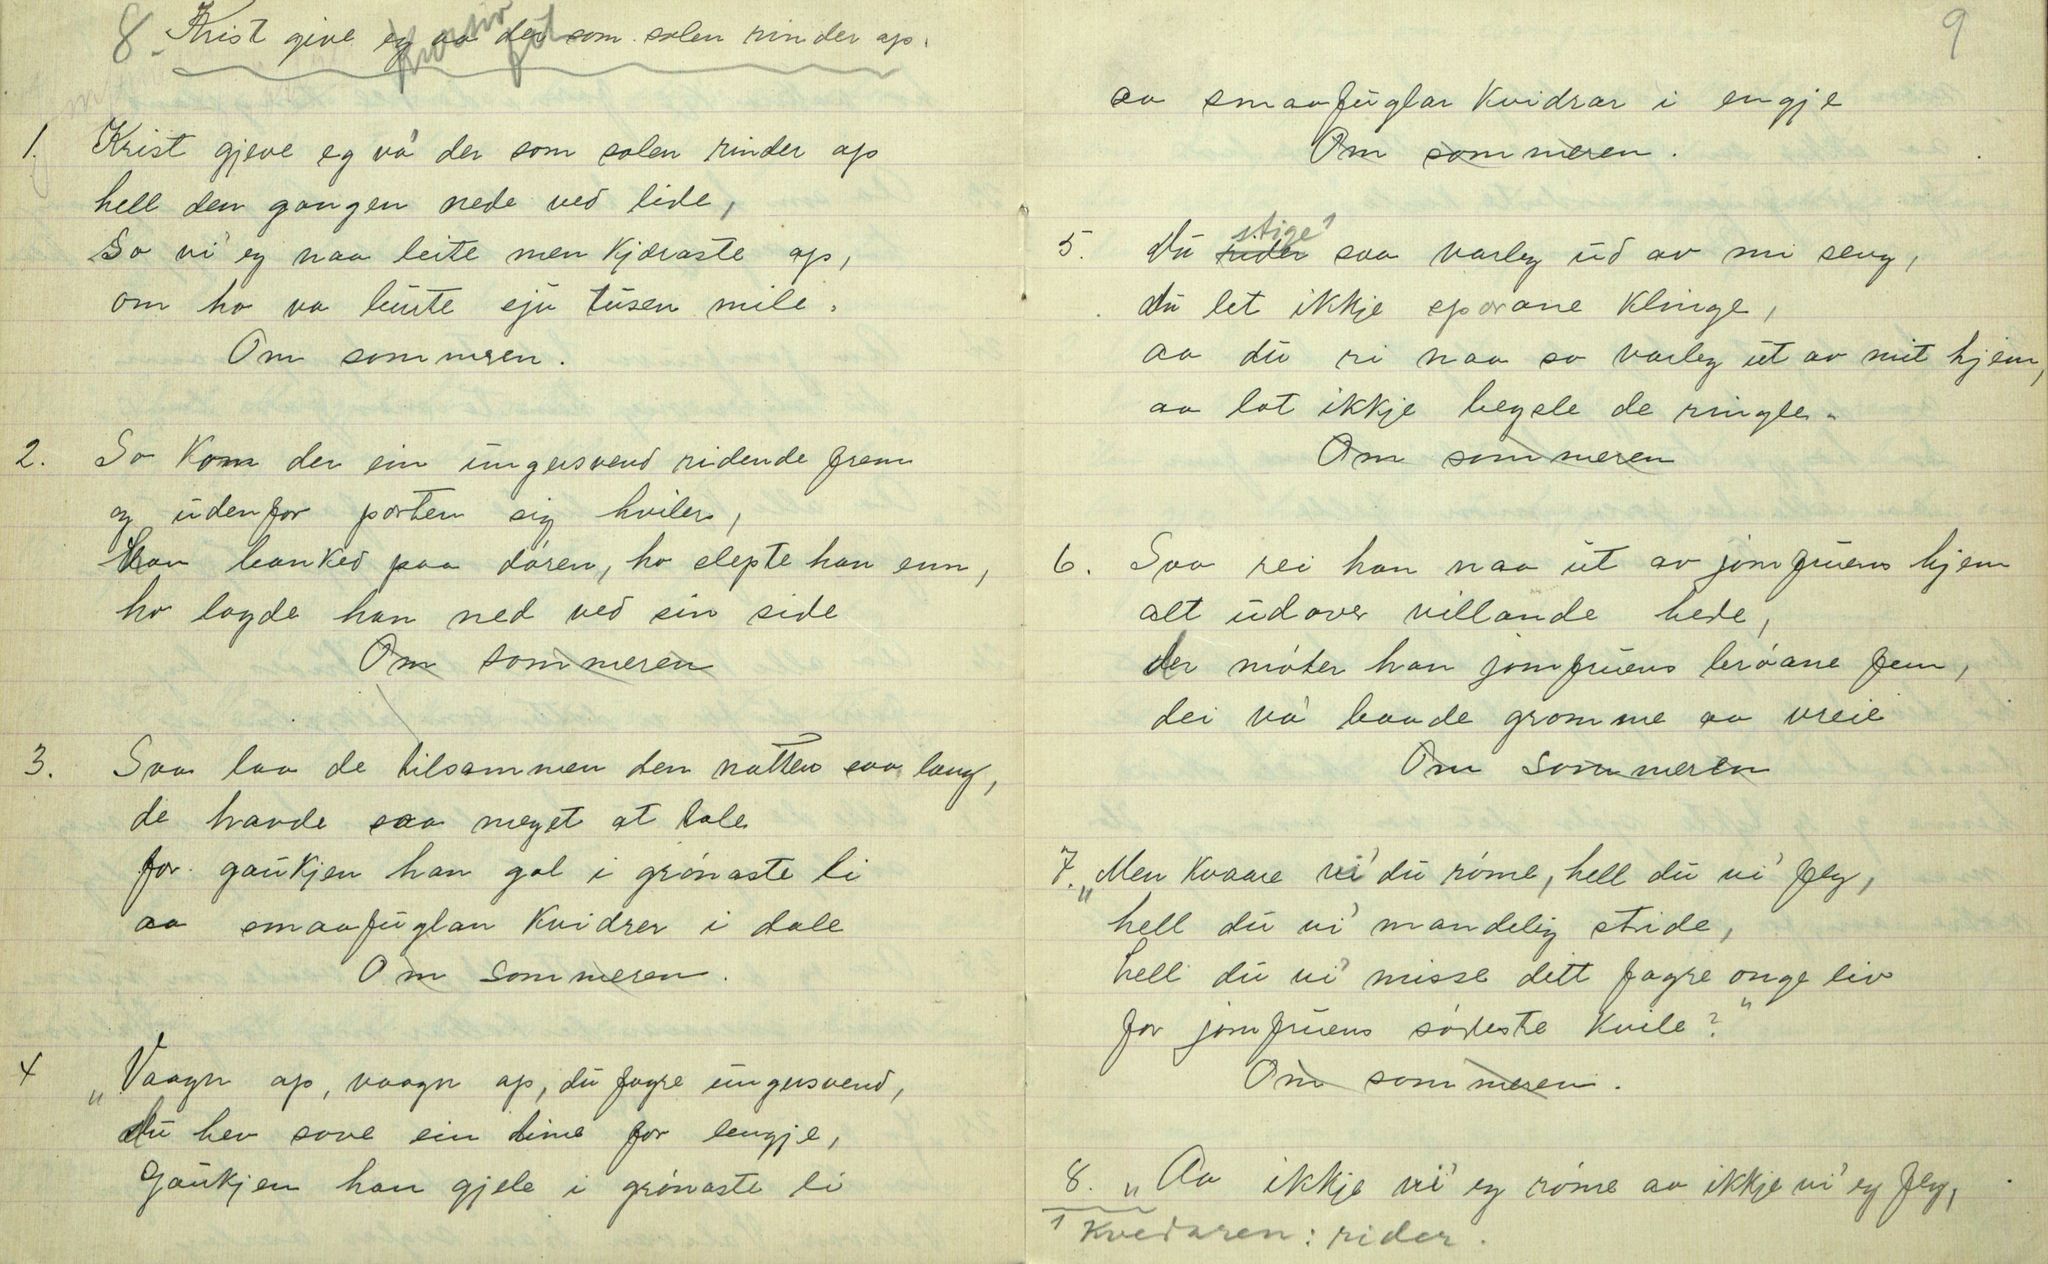 8. Krist give eg va der som solen rinder op.
1. Krist gjeve eg va' der som solen rinder op
hell den gongen nede ved lide,
So vi' eg naa leite men kjæraste op,
om ho va burte sju tusen mile.
Om sommeren.
2. So kom der ein ungersvend ridende frem
og udenfor porten sig hviler,
han banked paa døren, ho slepte han enn,
ho lagde han ned ved sin side
Om sommeren
3. Saa laa de tilsammen den natten saa lang,
de havde saa meget at tale
for gaukjen han gol i grønaste li
aa smaafuglan kvidrer i dale
Om sommeren.
4 „Vaagn op, vaagn op, du fagre ungersvend,
du hev sove ein time for lengje,
Gaukjen han gjele i grønaste li
9
aa smaafuglar kvidrar i engje
Om sommeren.
stige¹
5. Du rider saa varleg ud av mi seng,
du let ikkje sporane klinge,
aa du ri naa so varleg ut av mit hjem,
aa lat ikkje begsle de ringle.
Om sommeren
6. Saa rei han naa ut av jomfruens hjem
alt udover villande hede,
der møter han jomfruens brøane fem,
dei va' baade gromme aa vreie
Om sommeren
7. „Men kvaare vi' du røme, hell du vi' fly,
hell du vi' mandelig stride,
hell du vi' misse ditt fagre onge liv
for jomfruens sødeste kvile?"
Om sommeren.
8. „Aa ikkje vi' eg røme aa ikkje vi' eg fly,
1 Kvedaren: rider.